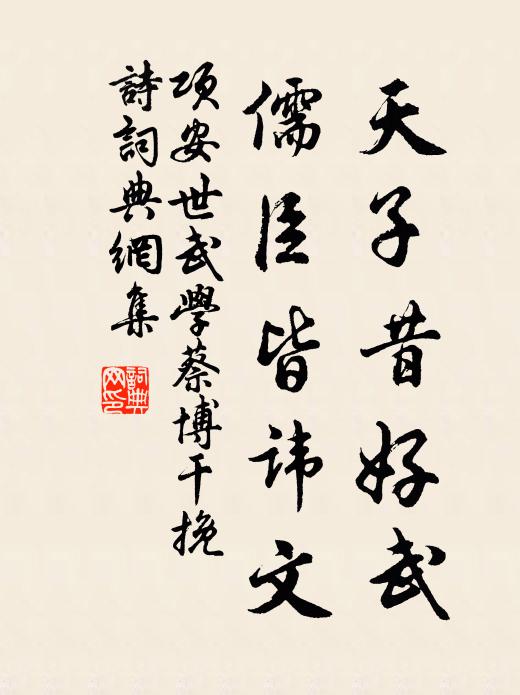 天子昔好武
儒臣皆諱文
項安世武學蔡博干挽
詩詞典網集
詞典网印